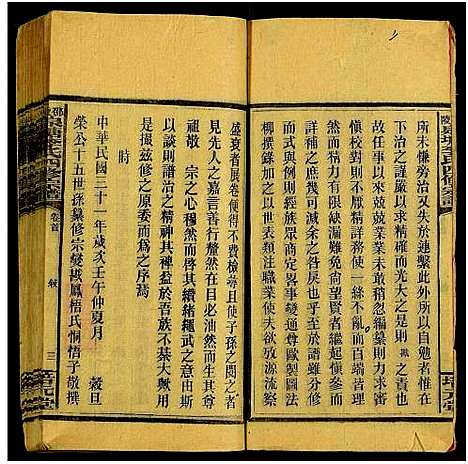 所未慊勞治又失於連繫此外所以自勉者惟以
下治之謹嚴以求其光而大之是則 職 之責也
故任事以來兢兢業業未敢稍忽編纂則按
圖稽考校閱則一字不苟使一絲不亂而百端皆理
然而精力有限缺漏難免尚望賢者繼起愼參而
詳補之庶幾可減余之咎戾也乎於是遂分修
例言以括大綱而商定畧事變通尊歐製圖法
柳撰錄以世表類注職業使夫欲放源流察
盛衰者展卷便得不費檢尋且使子孫之閱之者
見先人之嘉言善行龐然在目必油然而生其
祖敬 宗之心穆然而啓其續繩武之意由斯
以談則譜治之精神其裨益於吾族不甚大歟用
是撮兹修之原委而爲之序焉
時
中華民國三十一年歲次壬午仲夏月 穀旦
榮公十五世孫纂修宗燮撝鳳梧氏恫悟子敬撰
卷首
敍
三